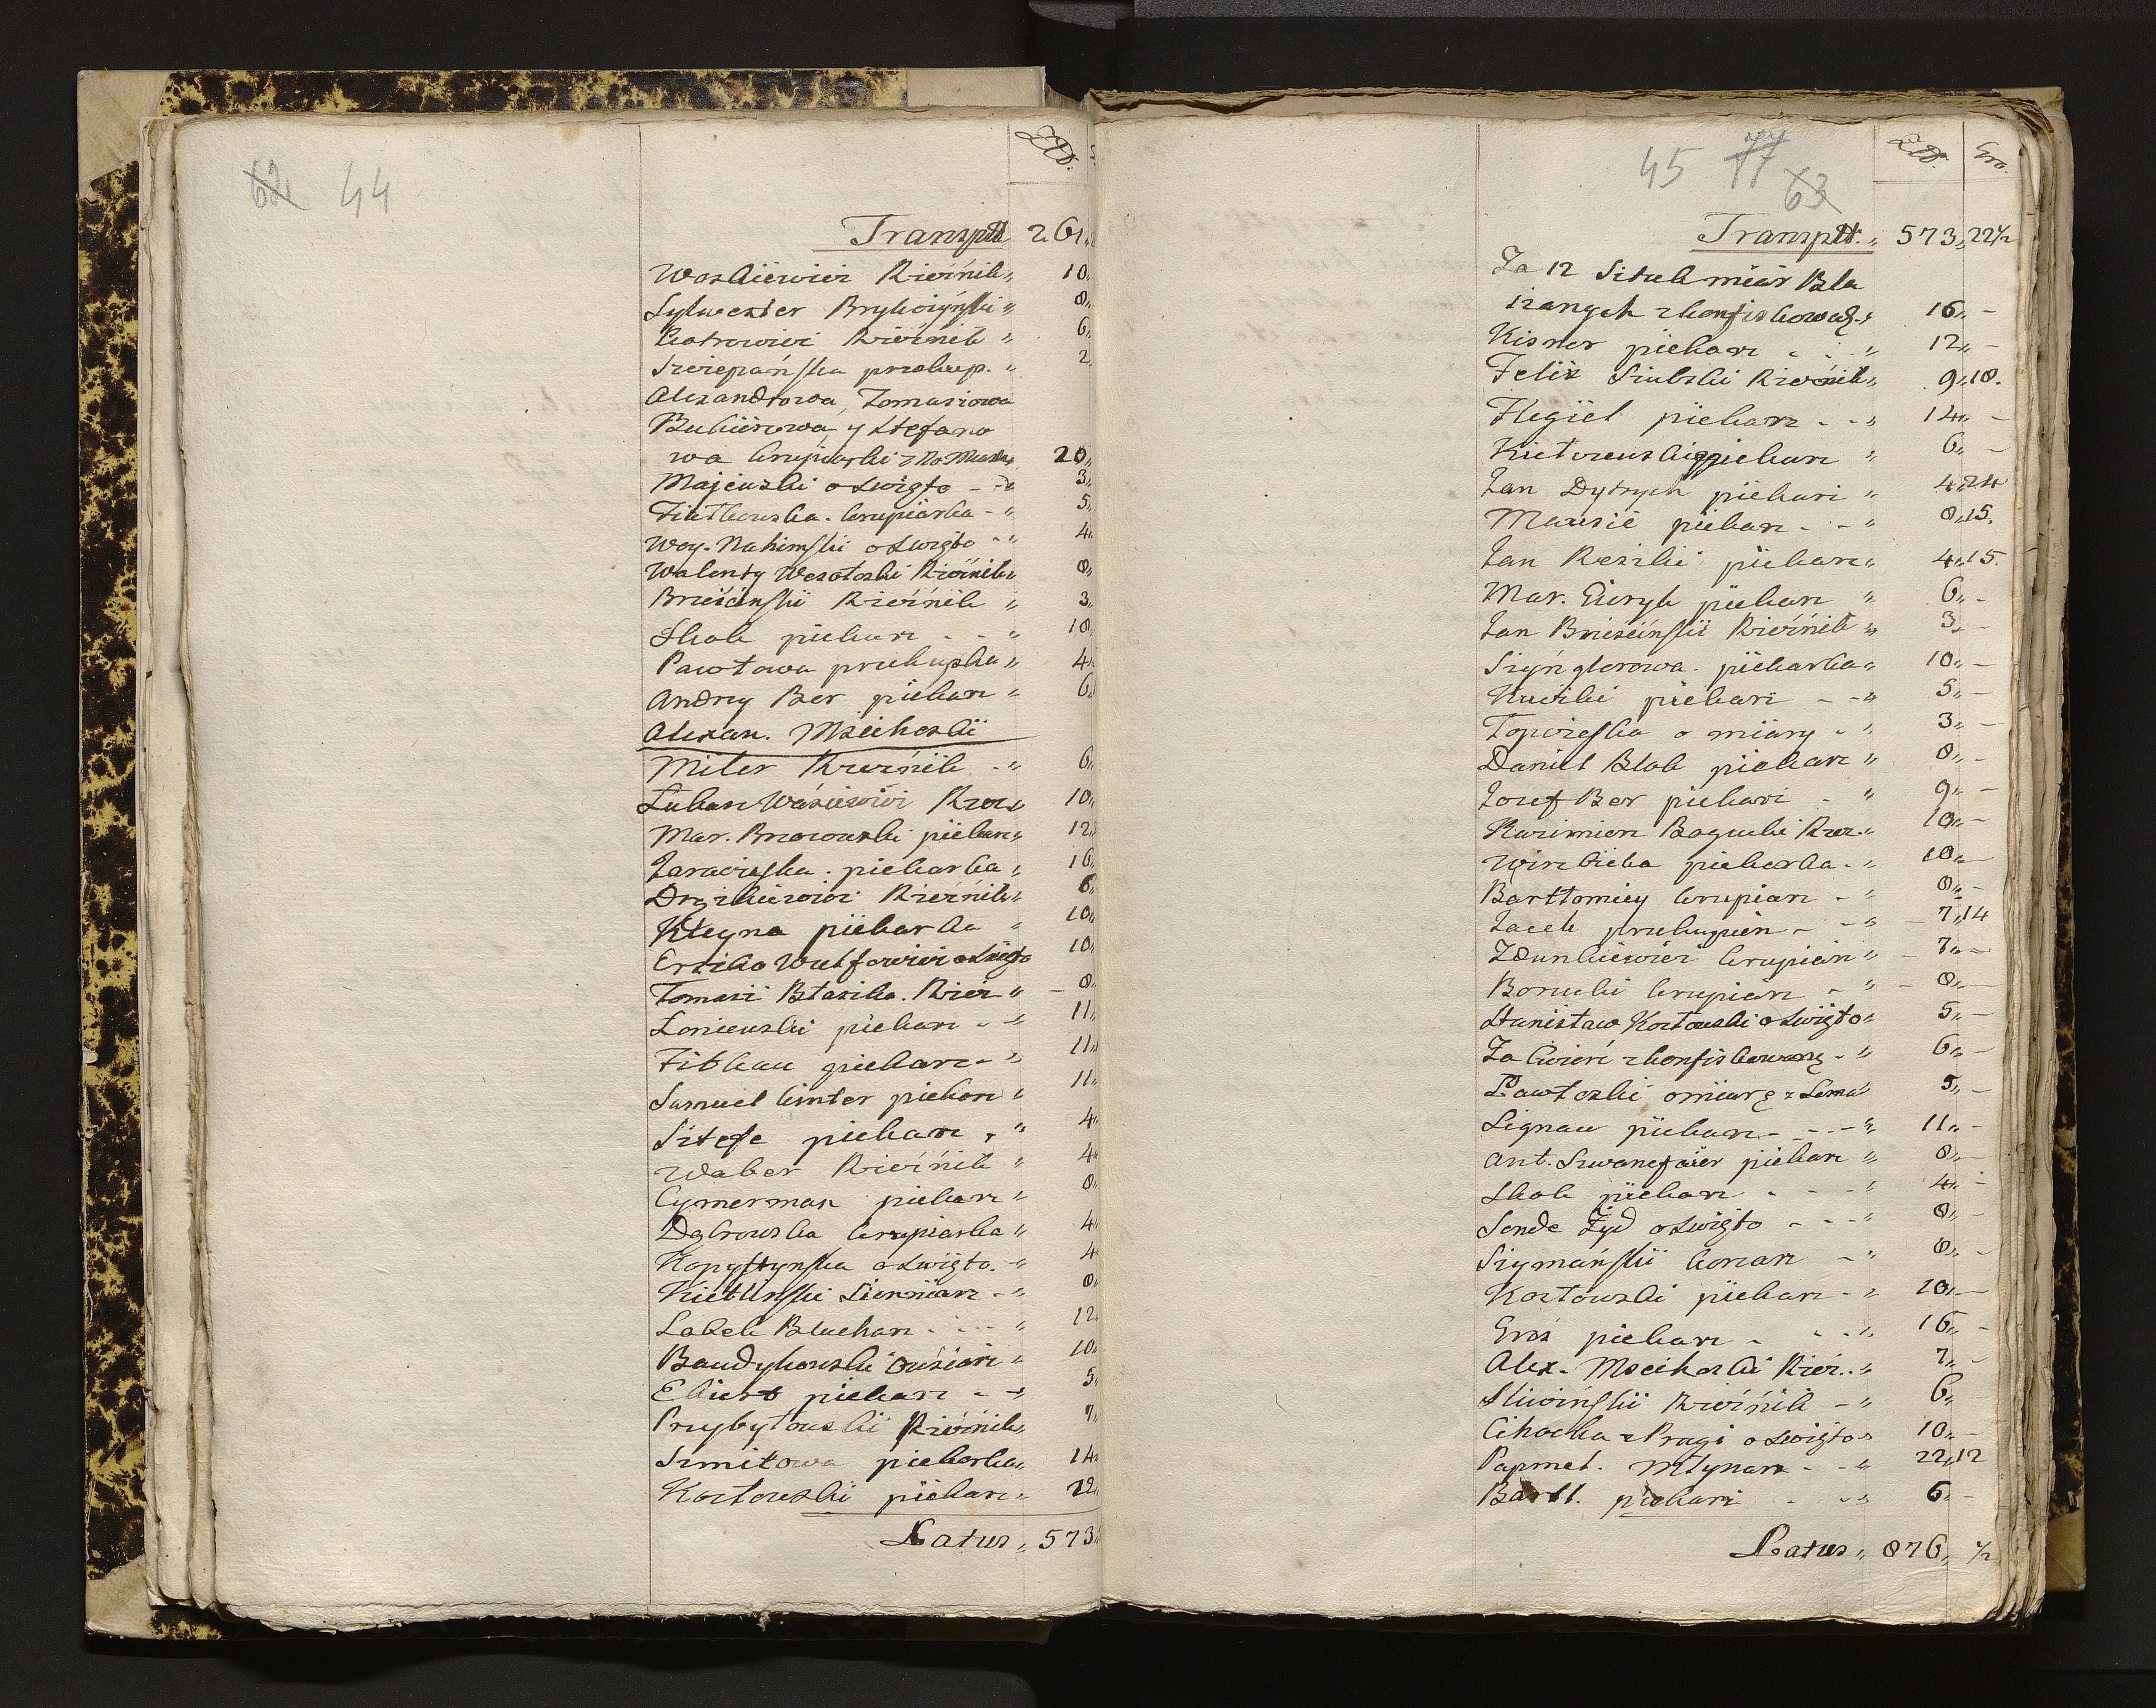 62 44
Złł.
Transptt 261
Waskiewicz Rzeźnik 10
Sylwester Brykczyński 8
Piotrowicz Rzeźnik 6
Szczepańska przekup. 2
Alexandrowa, Tomaszowa
Bukierowa, y Stefano
wa krupiarki 20
Majewski o Swięto 3
Fiutkowska krupiarka 5
Woy. Nahimski o Swięto 4
Walenty Wesołoski Rzeźnik 8
Brzeźinski Rzeźnik 3
Skok piekarz 18
Pawłowa przekupka 4
Andrzy Ber piekarz 6
Alexan. Mscihoski
Miler Rzeźnik 6
Łukasz Wasiewicz Rzez 10
Mar. Brzozowski piekarz 12
Zarzewska piekarka 16
Rzeźnik 6
Kleyna piekarka 10
Wulfowicz o Swięto 10
Tomasz Błaszka Rzez 8
Łoniewski piekarz 11
Fibkau piekarz 11
Samuel Ginter piekarz 11
Sztefe piekarz 4
Waber Rzeźnik 4
Cymerman piekarz 8
Dąbrowska krupiarka 4
Kopystynska o Swięto 4
Kietlinski Siemiarz 8
Labek Blacharz 12
Baudykowski Owsiarz 10
Ekiert piekarz 5
Przybyłowski Rzeźnik 7
Szmitowa piekarka 14
Kozłowski piekarz 22
Latus 573
45 77 63
Złł. Gro.
Transptt. 573 22½
Za 12 Sztuk miar Bla
szanych zkonfiskowa. 16 -
Kisner piekarz 12 -
Felix Szulski Rzeźnik 9 18
Flegiel piekarz 14 -
piekarz 6 -
Jan Dytrych piekarz 4 24
Mausie piekarz 8 15
Jan Reszki piekarz 4 15
Mar. piekarz 6 -
Jan Brzeźinski Rzeźnik 3 -
Szynglerowa piekarka 10 -
Kuczki piekarz 5 -
Topczeska o miary 3 -
Daniel Blok piekarz 8 -
Jozef Ber piekarz 9 -
Kazimierz Bogucki Rzez. 10 -
Wierzbicka piekarka 10 -
Bartłomiey krupiarz 8 -
Jacek przekupień 7 14
Zdunkiewicz krupiarz 7 -
Borucki krupiarz 8 -
Stanisław Kozłowski o Swięto 5 -
Za cwierć zkonfiskowaną 6 -
Pawłoski o miarę z Sema 5 -
Lignau piekarz 11 -
Ant. Szwanefaier piekarz 8 -
Skok piekarz 4 -
Sende Żyd o Swięto 8 -
Szymański korzarz 8 -
Kozłowski piekarz 10 -
Gros piekarz 16 -
Alex. Mscihoski Rzez. 7 -
Sliwiński Rzeźnik 6 -
Cihocka z Pragi o Swięto 10 -
Papmel. Młynarz 22 12
Bartl. piekarz 6 -
Latus 876 ½